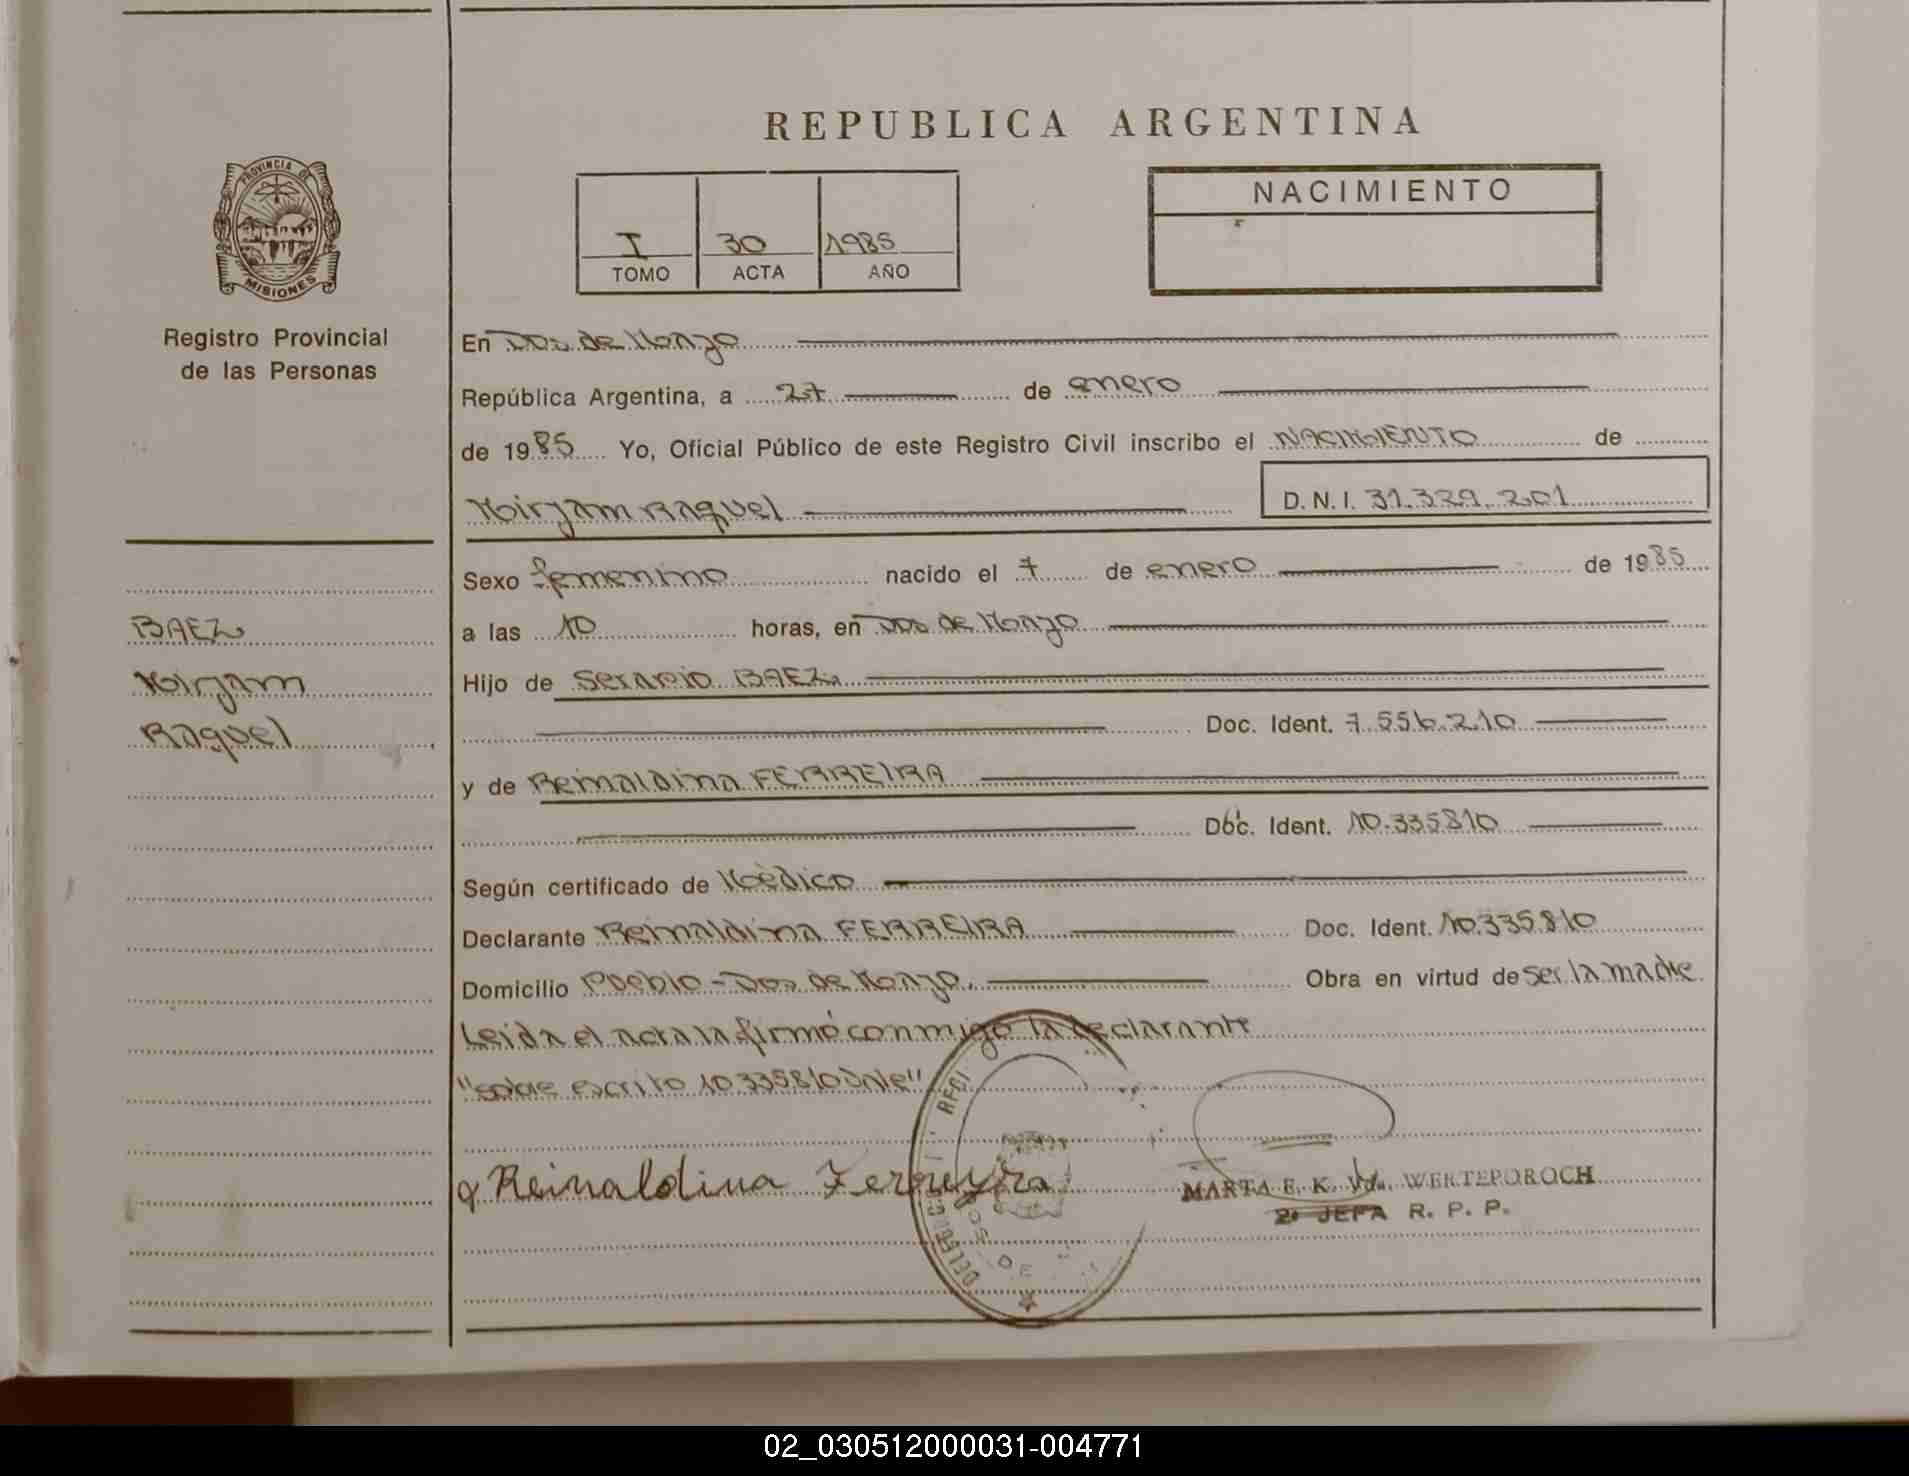 REPUBLICA ARGENTINA
PROVINCIA DE
MISIONES
Registro Provincial
de las Personas
I 30 1985
TOMO ACTA AÑO
NACIMIENTO
En Dos de Mayo
República Argentina, a 27 de enero
de 1985 Yo, Oficial Público de este Registro Civil inscribo el NACIMIENTO de
Mirjam Raquel D.N.I. 31.329.201
Sexo femenino nacido el 7 de enero de 1985
BAEZ
Mirjam
Raquel
a las 10 horas, en Dos de Mayo
Hijo de Serapio BAEZ
Doc. Ident. 7.556.210
y de Reinaldina FERREIRA
Doc. Ident. 10.335810
Según certificado de Médico
Declarante Reinaldina FERREIRA Doc. Ident. 10.335810
Domicilio Pueblo - Dos de Mayo. Obra en virtud de ser la madre
Leida el acta la firmó conmigo la declarante
"sobre escrito 10.335810 Vale"
Reinaldina Ferreyra
MARTA E. K. Vda. WERTEPOROCH
2ª JEFA R. P. P.
DOS DE
02_030512000031-004771